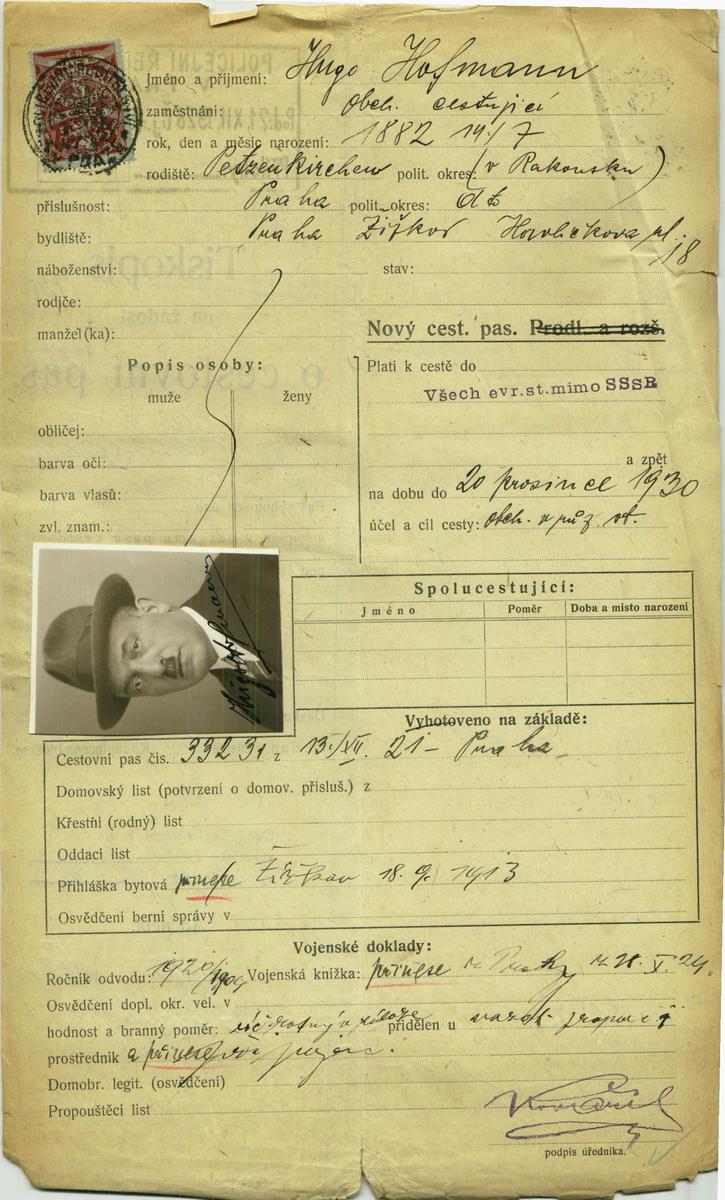 Jméno a příjmení: Hugo Hofmann
zaměstnání: Obch. cestující
rok, den a měsíc narození: 1882 14/7
rodiště: Petzenkirchen polit. okres: (v Rakousku)
příslušnost: Praha polit. okres: dt
bydliště: Praha Žižkov Havlíčkova pl. 18
náboženství: stav:
rodiče:
manžel(ka):
Nový cest. pas. Prodl. a rozš.
Popis osoby:
muže ženy
obličej:
barva očí:
barva vlasů:
zvl. znam.:
Platí k cestě do
Všech evr.st.mimo SSSR
a zpět
na dobu do 20 prosince 1930
účel a cíl cesty: obch. v růz. st.
Spolucestující:
Jméno Poměr Doba a místo narození
Vyhotoveno na základě:
Cestovní pas čís. 33231 z 13./XII. 21 - Praha
Domovský list (potvrzení o domov. přísluš.) z
Křestní (rodný) list
Oddací list
Přihláška bytová přinese Žižkov 18. 9. 1913
Osvědčení berní správy v
Vojenské doklady:
Ročník odvodu: 1920/ Vojenská knížka: přinese 28. X. 24.
Osvědčení dopl. okr. vel. v
hodnost a branný poměr: přidělen u
prostředník a přinese
Domobr. legit. (osvědčení)
Propouštěcí list
podpis úředníka.